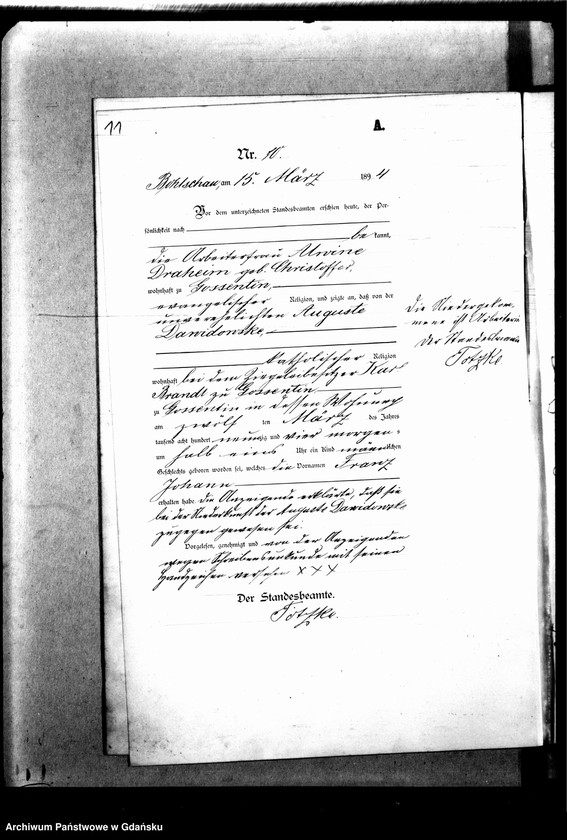 11
A.
Nr. 10.
Bohlschau am 15. März 1894
Vor dem unterzeichneten Standesbeamten erschien heute, der Per-
sönlichkeit nach
be kannt,
die Arbeiterfrau Alwine
Draheim geb. Christoffer,
wohnhaft zu Gossentin,
evangelischer Religion, und zeigte an, daß von der
unverehelichten Auguste
Dawidowske,
katholischer Religion
wohnhaft bei dem Ziegeleibesitzer Karl
Brandt zu Gossentin
zu Gossentin in dessen Wohnung
am zwölf ten März des Jahres
tausend acht hundert neunzig und vier morgens
um halb eins Uhr ein Kind männlichen
Geschlechts geboren worden sei, welches die Vornamen Franz
Johann
erhalten habe. die Anzeigende erklärte, daß sie
bei der Niederkunft der Auguste Dawidowske
zugegen gewesen sei.
Vorgelesen, genehmigt und von der Anzeigenden
wegen Schreibensunkunde mit seinen
Handzeichen versehen XXX
Der Standesbeamte.
Totzke.
die Niedergekom-
mene ist Arbeiterin
Der Standesbeamte
Totzke
Archiwum Państwowe w Gdańsku